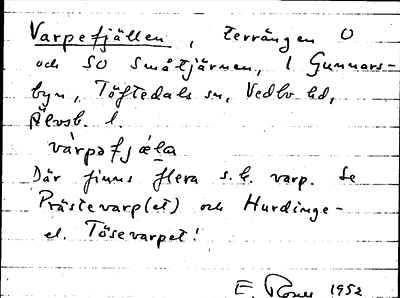 Varpefjällen, terrängen O
och SO Småtjärnen, l Gunnars-
byn, Töftedals sn, Vedbo hd,
Älvsb. l.
várpəfjæ̀la
Där finns flera s.k. varp. Se
Prästevarp(et) och Hurdinge-
el. Tösevarpet!
E. 1952